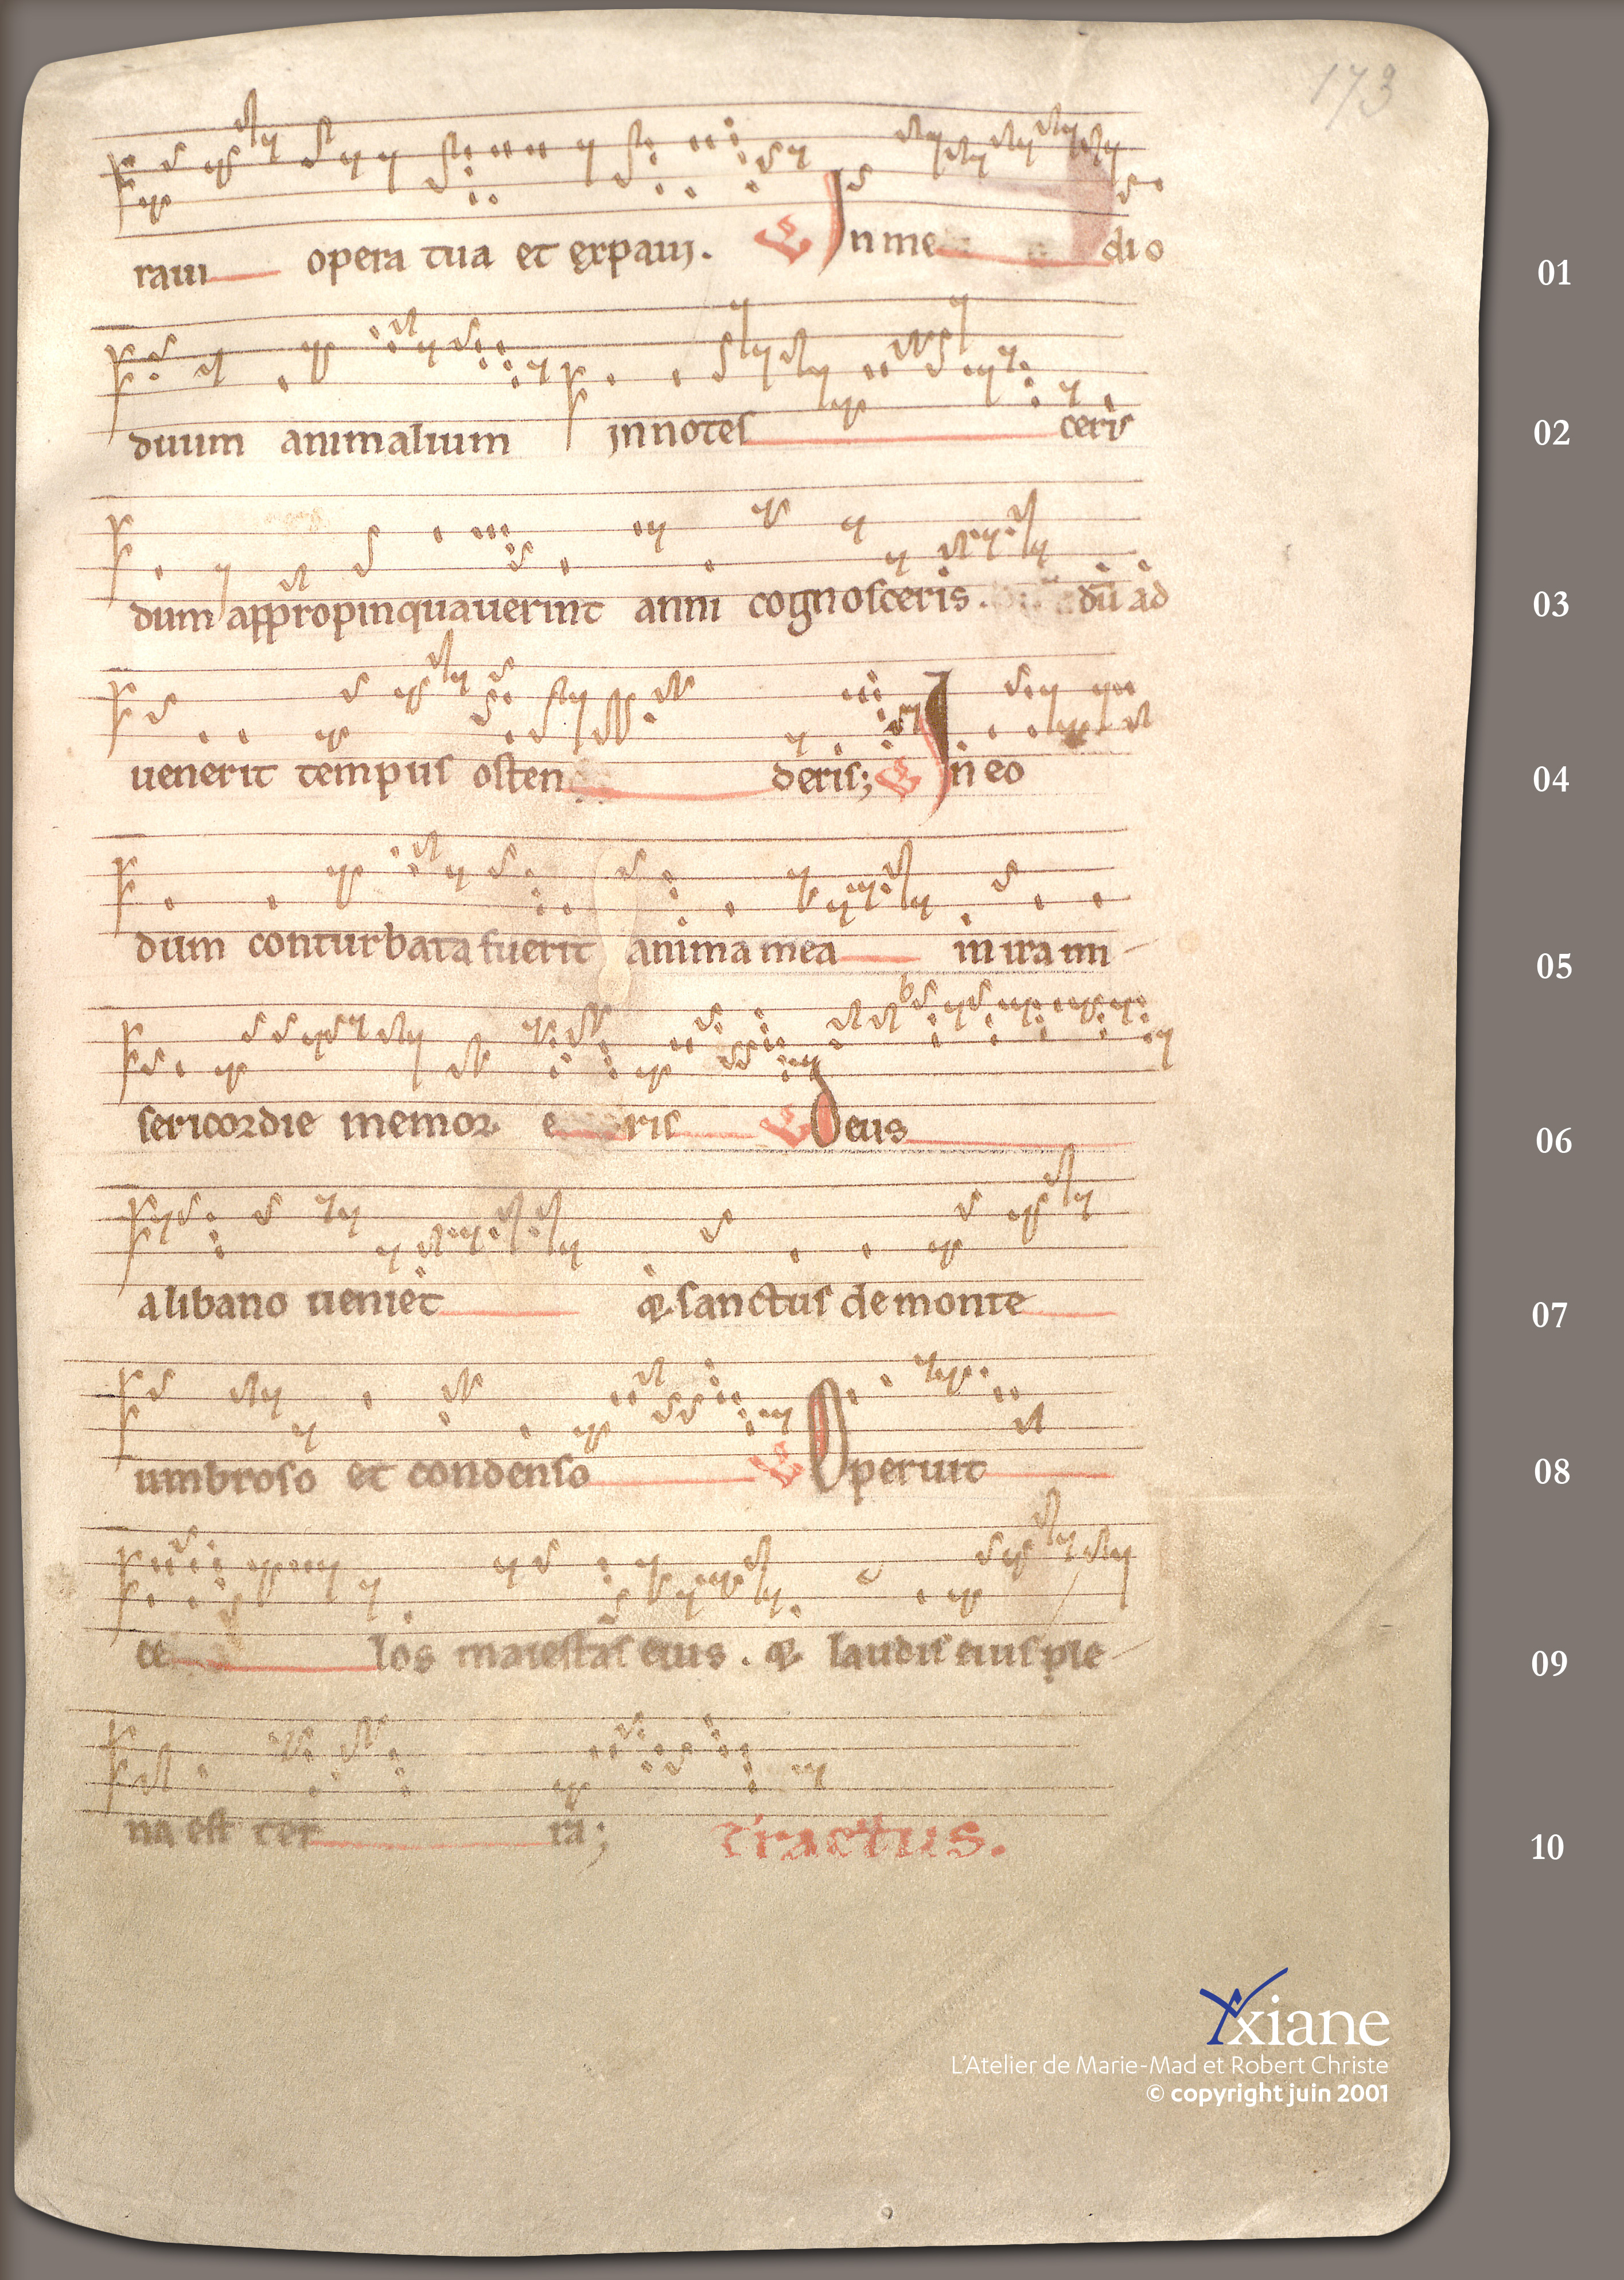 173
raui opera tua et expaui. V In me dio
01
duum animalium innotes ceris
02
dum appropinquauerint anni cognosceris. dū ad
03
uenerit tempus osten deris; V In eo
04
dum conturbata fuerit anima mea in ira mi
05
sericordie memor e ris V Deus
06
a libano ueniet & sanctus de monte
07
umbroso et condenso V Operuit
08
ce los maiestas eius. & laudis eius ple
09
na est ter ra; Tractus.
10
Yxiane
L'Atelier de Marie-Mad et Robert Christe
© copyright juin 2001